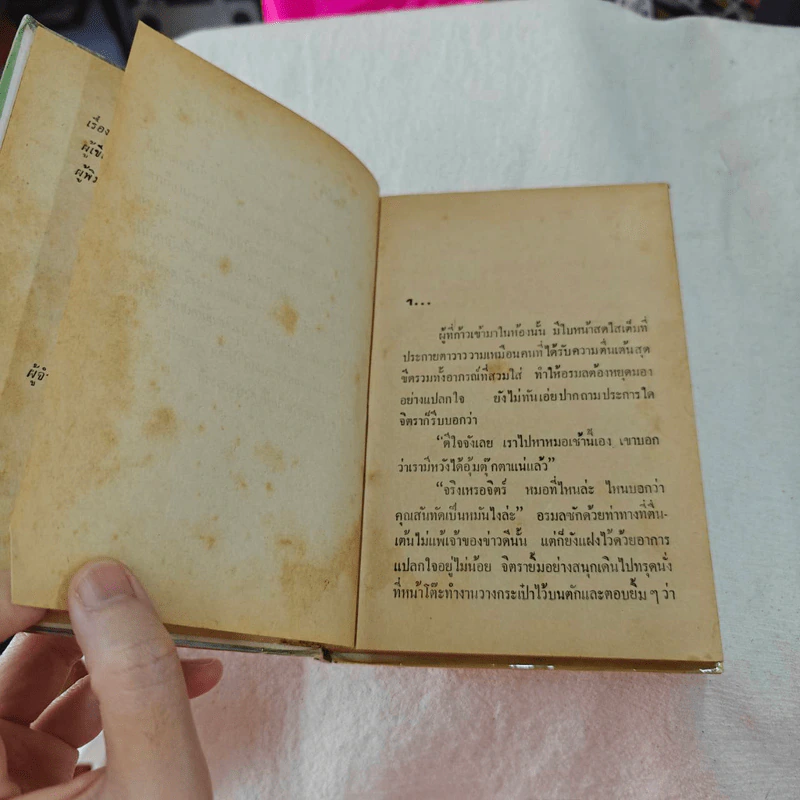 เรื่อง
ผู้เขี
ผู้พิ
ผู้จั
๑...
ผู้ที่ก้าวเข้ามาในห้องนั้น มีใบหน้าสดใสเต็มที่
ประกายตาวาววามเหมือนคนที่ได้รับความตื่นเต้นสุด
ขีดรวมทั้งอาภรณ์ที่สวมใส่ ทำให้อรมลต้องหยุดมอง
อย่างแปลกใจ ยังไม่ทันเอ่ยปากถามประการใด
จิตราก็รีบบอกว่า
“ดีใจจังเลย เราไปหาหมอเช้านี้เอง เขาบอก
ว่าเรามีหวังได้อุ้มตุ๊กตาแน่แล้ว”
“จริงเหรอจิตร์ หมอที่ไหนล่ะ ไหนบอกว่า
คุณสันทัดเป็นหมันไงล่ะ” อรมลซักด้วยท่าทางที่ตื่น-
เต้นไม่แพ้เจ้าของข่าวดีนั้น แต่ก็ยังแฝงไว้ด้วยอาการ
แปลกใจอยู่ไม่น้อย จิตรายิ้มอย่างสนุกเดินไปทรุดนั่ง
ที่หน้าโต๊ะทำงานวางกระเป๋าไว้บนตักและตอบยิ้ม ๆ ว่า